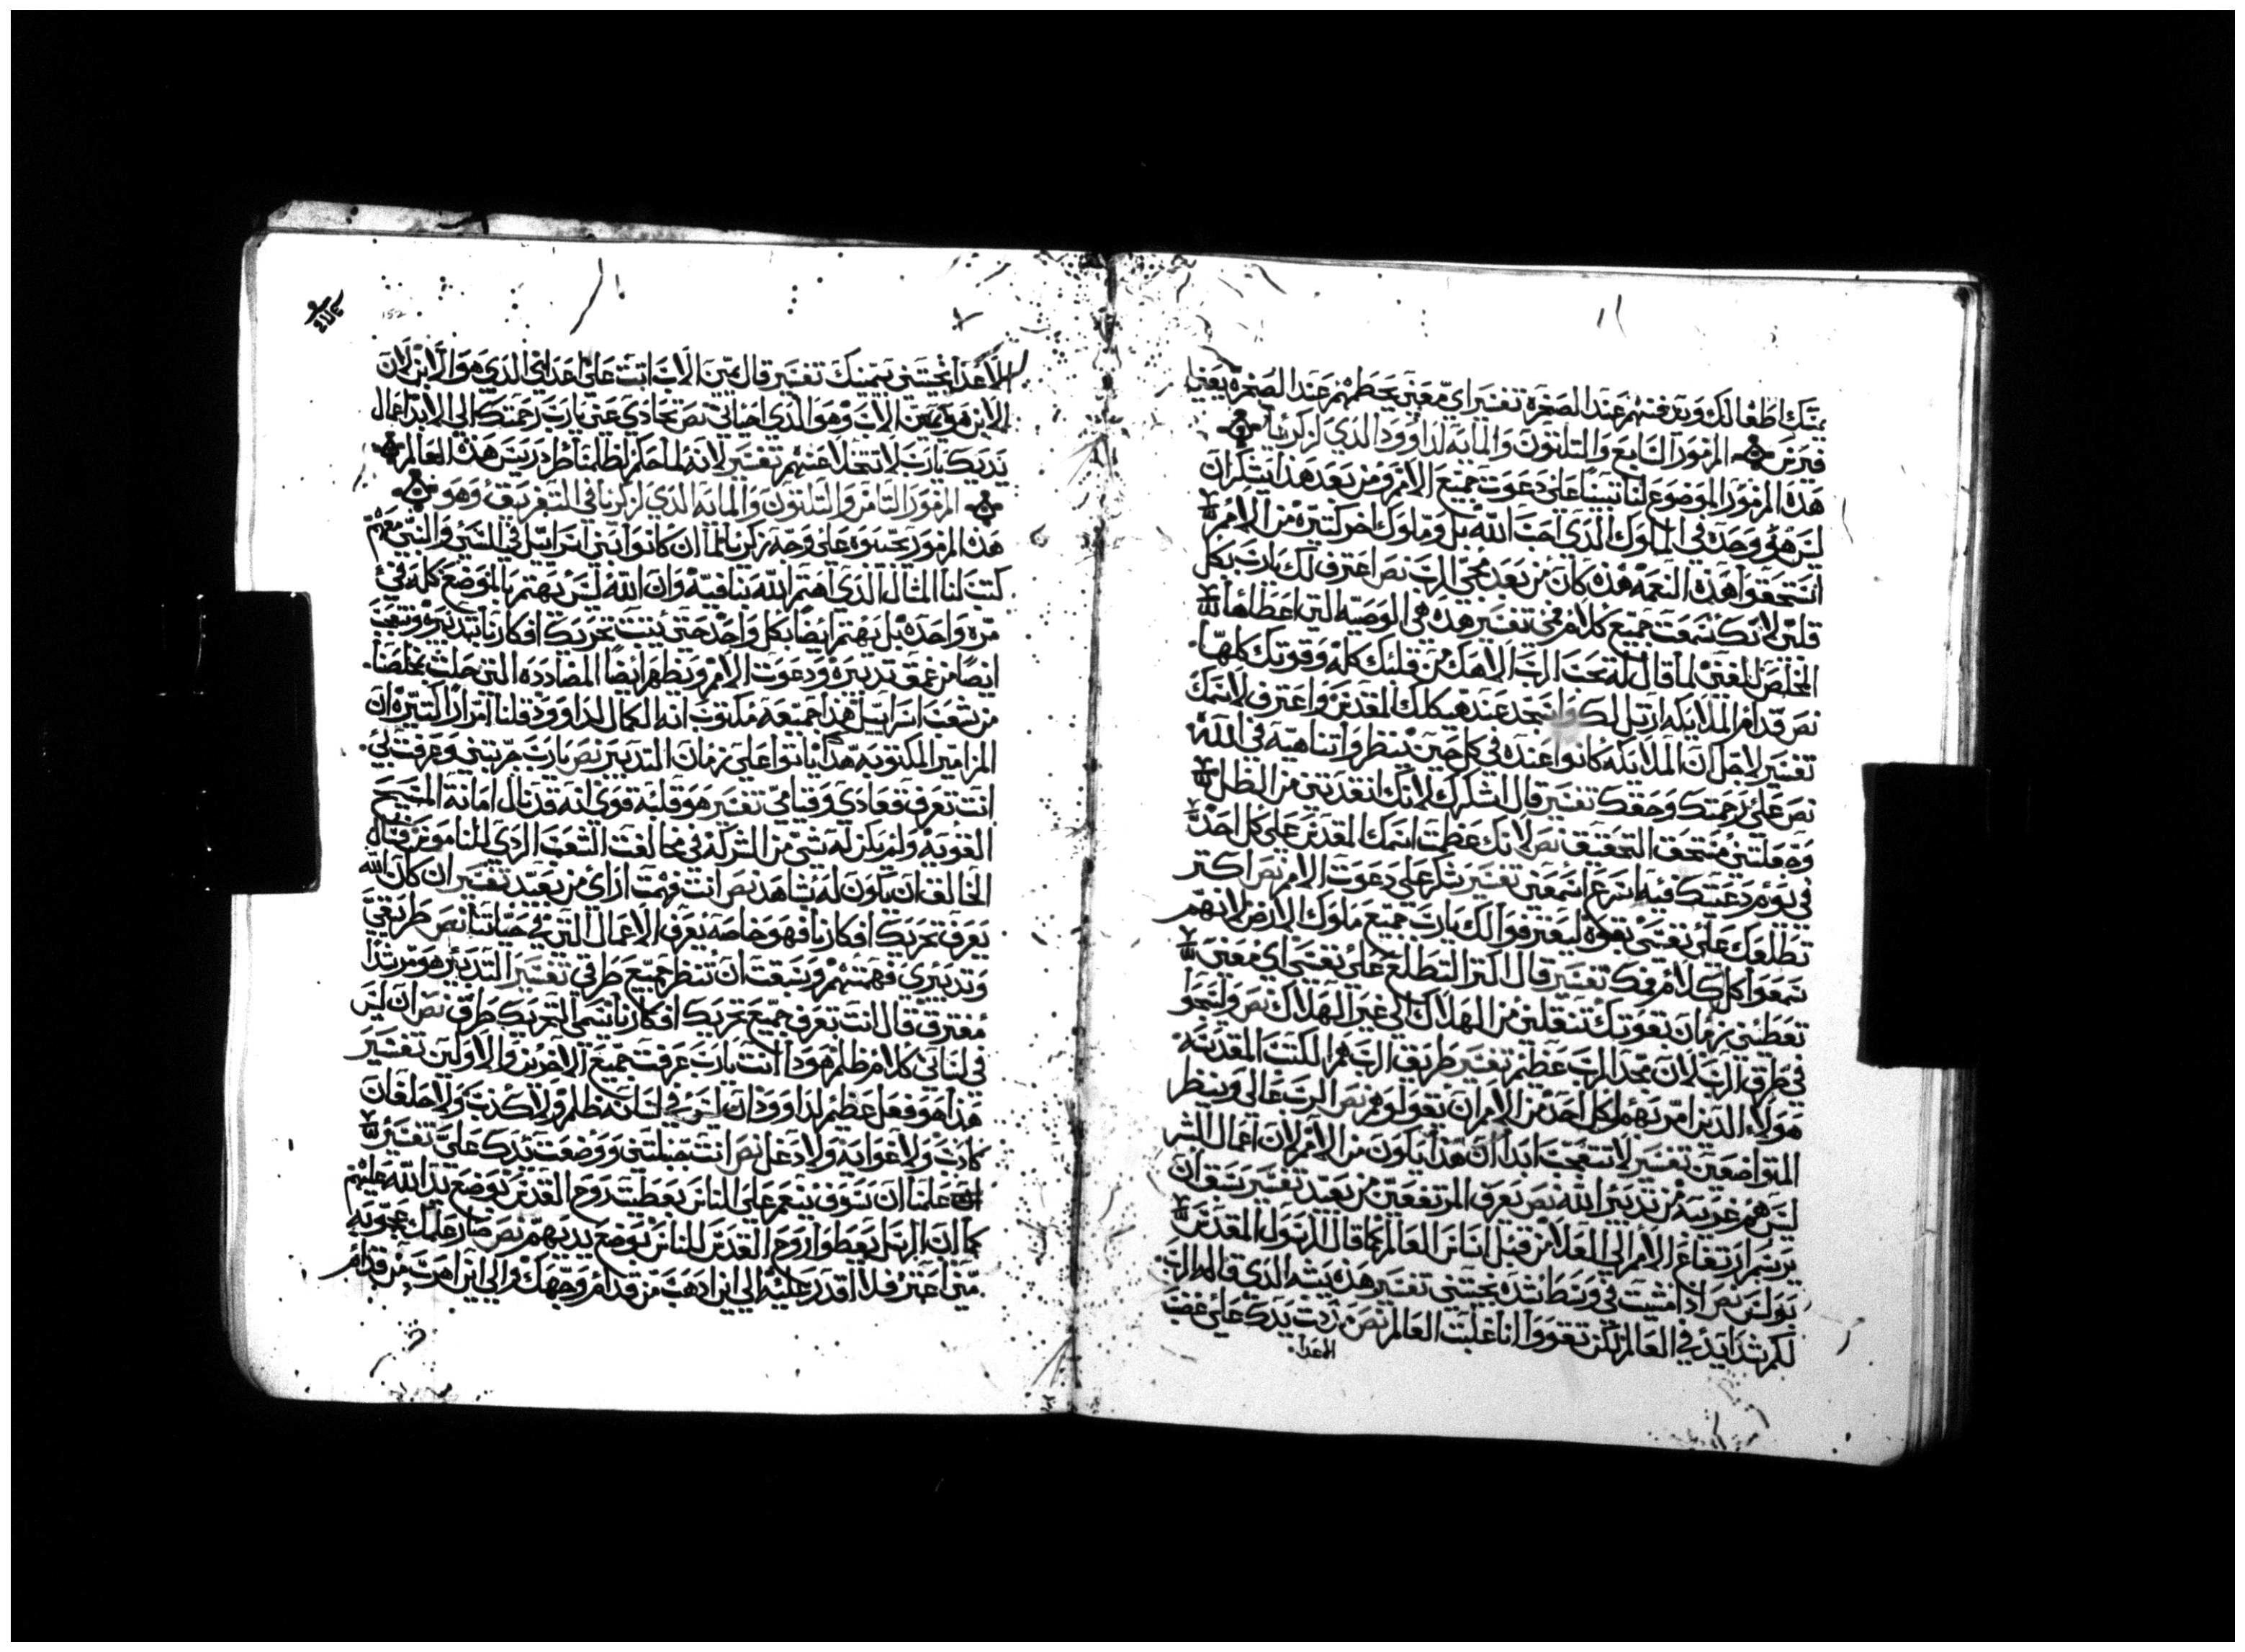 يمسك اطفالك ويدفنهم عند الصخرة تفسير اي معنى يحطمهم عند الصخرة يعني
المزمور السابع والتلتون والمايه لداوود الذي لزكريا
هذا المزمور الموضوع لنا تبينا على دعوت جميع الامم ومن بعد هذا يشكر ان
ليس هو وحده في الملوك الذي احب الله بل وملوك اخر كتيره من الامم
استحقوا هذه النعمه هذه كان من بعد مجي الرب نص اعترف لك يارب بكل
قلبي لانك سمعت جميع كلام فمي تفسير هذه هي الوصيه التي اعطاها
المخلص للمغني لما قال له تحب الرب الاهك من قلبك كله وقوتك كلها
نص قدام الملايكه ارتل لك واسجد عند هيكلك المقدس واعترف لاسمك
تفسير لاجل ان الملايكه كانوا عنده في كل حين ينتظروا تناهيه في الله
نص على رحمتك وحقك تفسير قال اشكرك لانك انقدتني من الظلال
وجعلتني مستحق التحقيق نص لانك عظمت اسمك المقدس على كل احد
في يوم دعيتك فيه اسرع اسمعني تفسير يشكر على دعوت الامم نص اكتر
تطلعك على نفسي بقوه ليعترفوا لك يارب جميع ملوك الارض لانهم
سمعوا كل كلام فمك تفسير قال اكتر التطلع على نفسي اي معنى
تعطيني زمان بقوتك تنقلني من الهلاك الى غير الهلاك نص وليسبحوا
في طرق الرب لان مجد الرب عظيم تفسير طريق الرب هم الكتب المقدسه
هولاء الدين امر بهم لكل احد من الامم ان يقولوهم نص الرب عالي وينظر
المتواضعين تفسير لا تتعجب ابدا ان هذا يكون من الامم لان اعمال البشر
ليس هم غريبه من تدبير الله نص يعرف المرتفعين من بعيد تفسير سبق ان
يرسم ارتفاع الامم الى العلا من قبل اساس العالم كما قال الرسول المقدس
بولس نص ادا مشيت في وسط شده تحييني تفسير هذه يشبه الذي قاله الرب
لكم شدايد في العالم لكن تقووا انا غلبت العالم نص مددت يدك على غضب
الاعدا
الاعدا نجتني يمينك تفسير قال يمين الاب اتت على اعداي الذي هو الابن لان
الابن هو يمين الاب وهو الذي احياني نص تجازي عني يارب رحمتك الى الابد اعمال
يديك يارب لا تتخلا عنهم تفسير لانه
المزمور التامن والتلتون والمايه الذي لزكريا في التفريق وهو
هذا المزمور على وجه زكريا لما ان كانوا بني اسراييل في السبي والنبي معهم
كتب لنا المثال الذي اهتم الله وان الله ليس يهتم بالموضع كله في
مره واحده بل يهتم ايضا بكل واحد حتى تحريك افكارنا بتدبيره
ايضا من عمق تدبيره ودعوت الامم ويظهر ايضا المضادده التي حلت بمخلصنا
من شعب اسراييل هذا جميعه مكتوب انه الكمال لداوود وقلنا امرار اكتيره ان
المزامير المكتوبه هذا ياتوا على زمان التدبير نص يارب جربتني وعرفتني
انت تعرف قعادي وقيامي تفسير هو قلبه قوي انه قد نال امانة المسيح
القويه ولم يكن له شي من الشركه في مخالفت الشعب الردي
ان يكون له شاهد نص انت فهمت اراي من بعيد تفسير ان كان الله
يعرف تحريك افكارنا فهو خاصه يعرف الاعمال التي في حياتنا نص طريقي
وتدبيري فهمتهم وسبقت ان تنظر جميع طرقي تفسير التدبير هو
معترف قال انت تعرف جميع تحريك افكارنا نسمي التحريك طرق نص ان ليس
في لساني كلام ظلم هودا انت يارب عرفت جميع الاخرين والاولين تفسير
هذا هو فعل عظيم لداوود ان ليس في لسانه ظلم ولا كدب ولا حلفان
كادب ولا غوايه ولا دغل نص انت جبلتني ووضعت يدك علي تفسير
علمنا ان سوف ينعم على الناس بعطيت روح القدس بوضع يد الله عليهم
كما ان الرسل يعطوا روح القدس للناس بوضع يديهم نص صار علمك عجوبه
مني اعتز فلا اقدر عليه الى اين ادهب من قدام وجهك والى اين اهرب من قدام
152